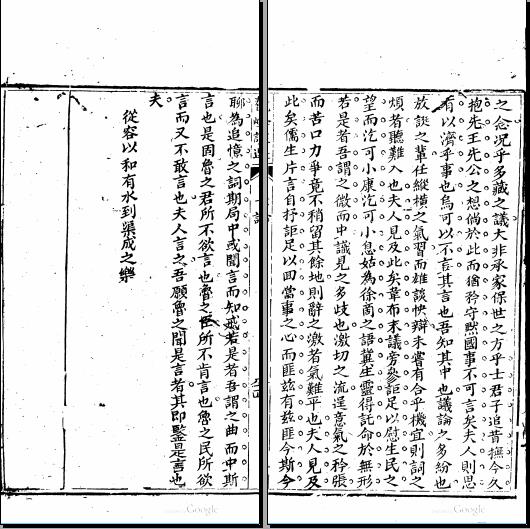 之念况乎多藏之議大非承家保世之方乎士君子追昔撫今久
抱先王先公之想倘於此而猶矜守黙國事不可言矣夫人則思
有以濟乎事也烏可以不言其言也吾知其中也議論之多紛也
放談之輩任縱橫之氣習而雄談快辯未嘗有合乎機宜則詞之
煩者聽難入也夫人見及此矣韋布末議旁參詎足以慰生民之
望而汔可小康汔可小息姑為徐商之語冀生靈得託命於無形
若是者吾謂之微而中識見之多歧也激切之流逞意氣之矜張
而苦口力爭竟不稍留其餘地則辭之激者氣難平也夫人見及
此矣儒生片言自抒詎足以回當事之心而匪兹有兹匪今斯今
聊為追憶之詞期局中或聞言而知戒若是者吾謂之曲而中斯
言也是固魯之君所不欲言也魯之臣所不肯言也魯之民所欲
言而又不敢言也夫人言之吾願魯之聞是言者其即鑒是言也
夫
從容以和有水到渠成之樂
Google
Google